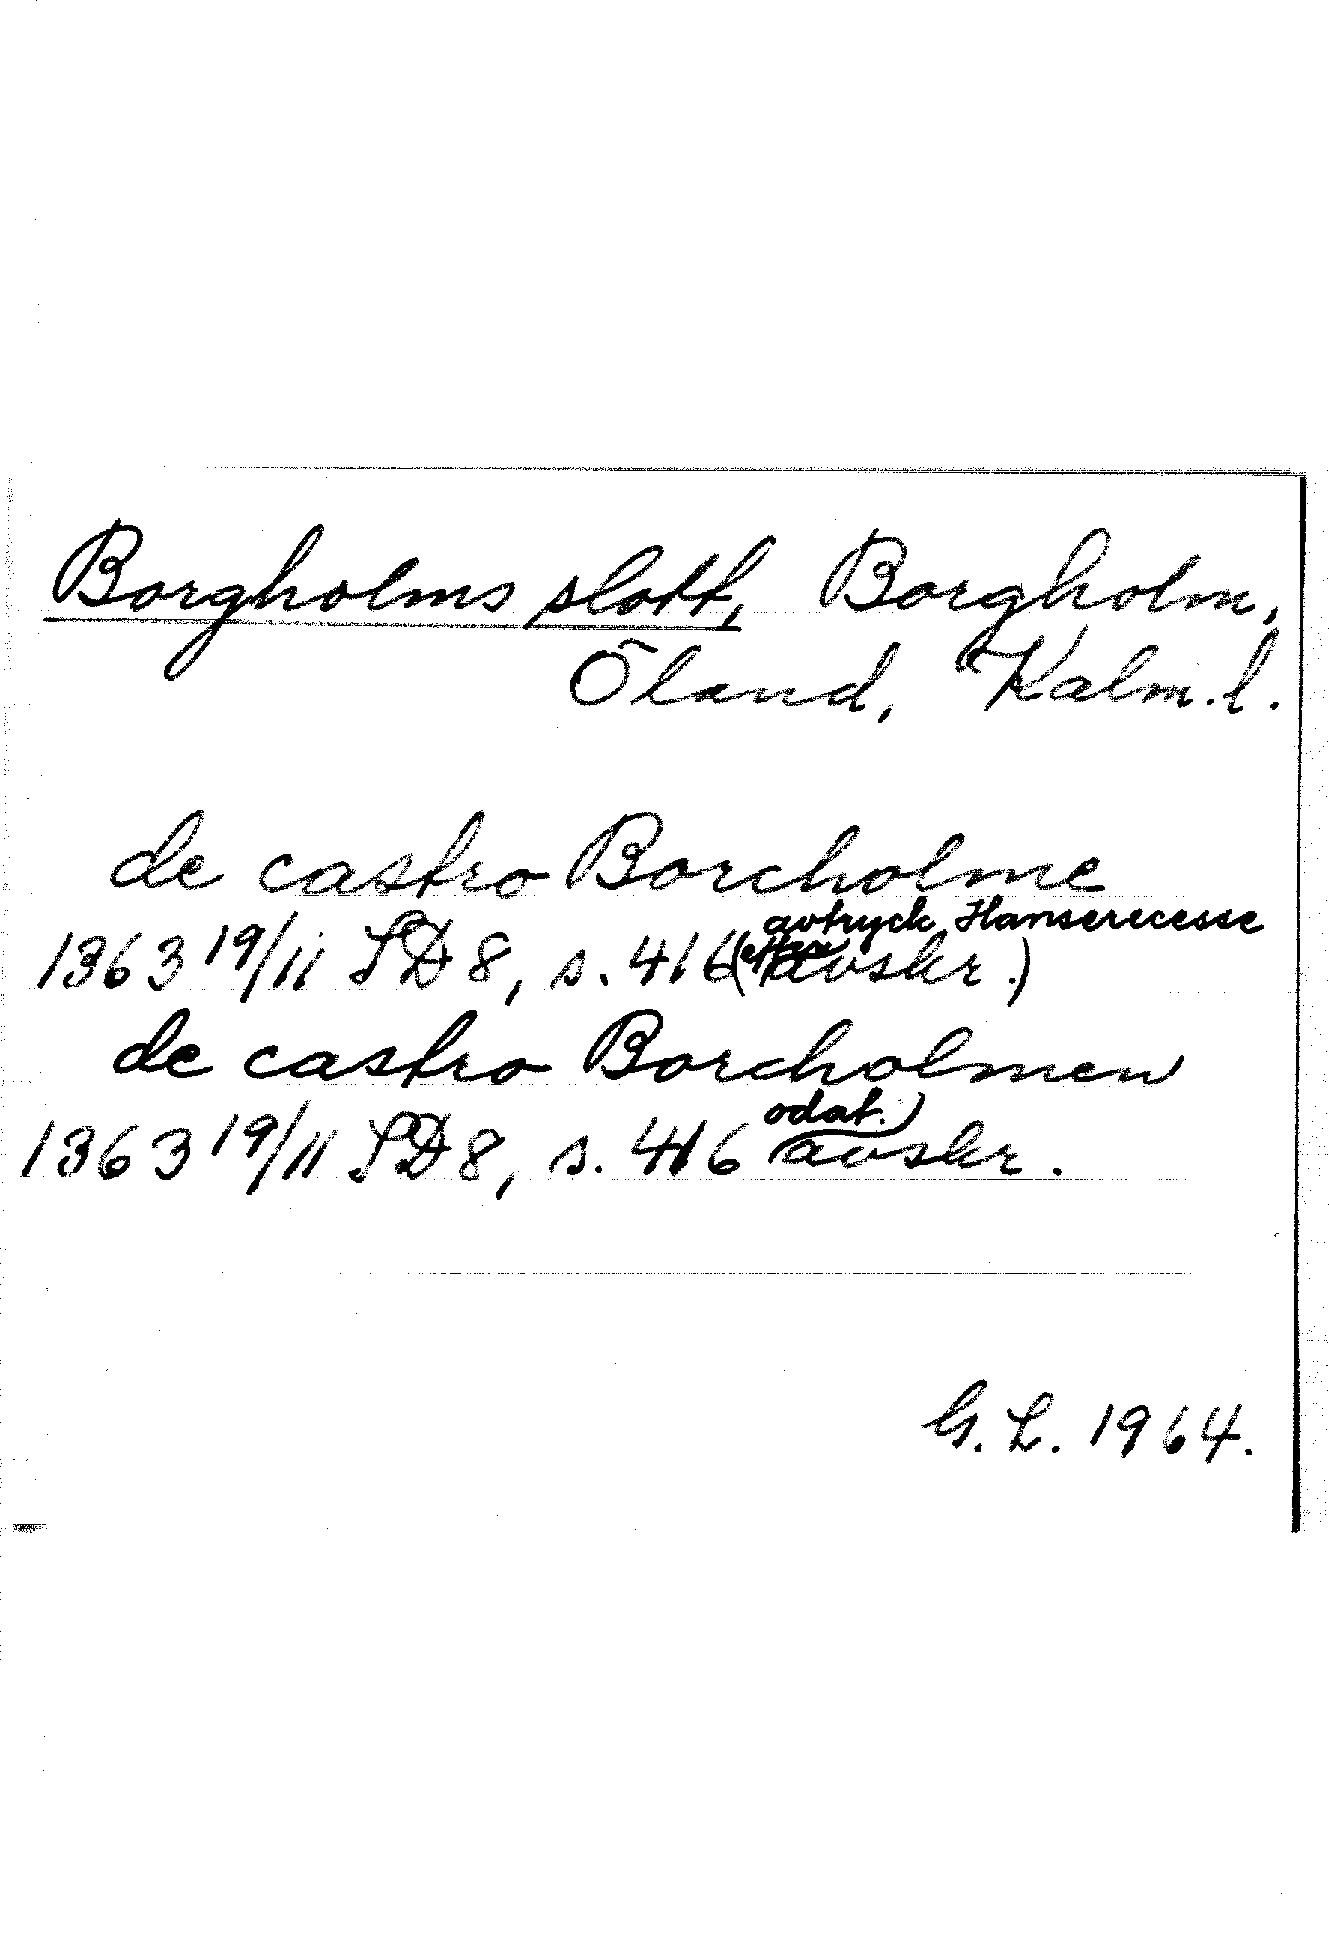 Borgholms slott, Borgholm,
Öland, Kalm. l.
de castro Borcholme
avtryck Hanserecesse
1363 19/11 SD 8, s. 416 (efter avskr.)
de castro Borcholmen
odat.)
1363 19/11 SD 8, s. 416 avskr.
G. L. 1964.